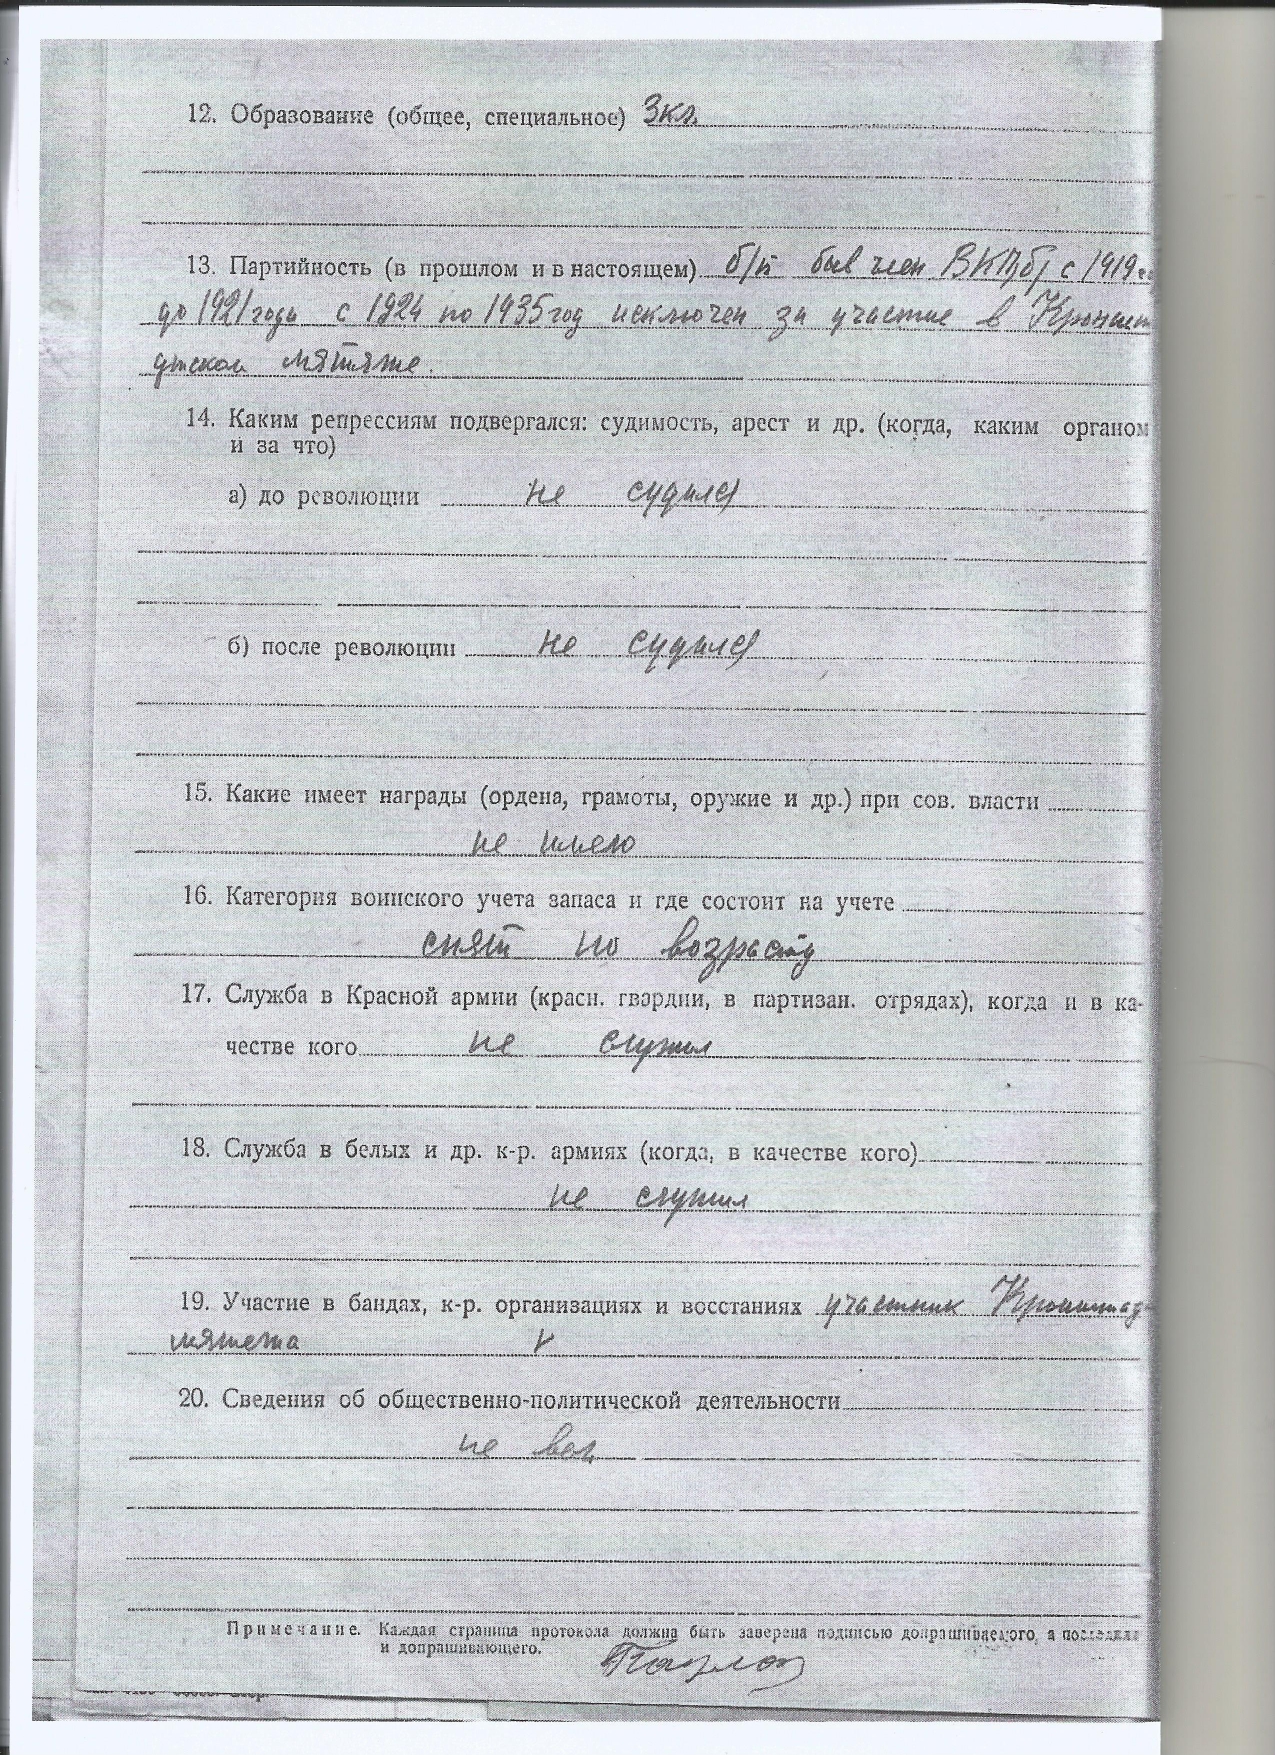 12. Образование (общее, специальное) 3 кл.
13. Партийность (в прошлом и в настоящем) б/п был член ВКП(б) с 1919 г.
до 1921 года с 1924 по 1935 год исключен за участие в Кроншта
дтском мятяже.
14. Каким репрессиям подвергался: судимость, арест и др. (когда, каким органом
и за что)
а) до революции не судился
б) после революции не судился
15. Какие имеет награды (ордена, грамоты, оружие и др.) при сов. власти
не имею
16. Категория воинского учета запаса и где состоит на учете
снят по возрасту
17. Служба в Красной армии (красн. гвардии, в партизан. отрядах), когда и в ка-
честве кого не служил
18. Служба в белых и др. к-р. армиях (когда, в качестве кого)
не служил
19. Участие в бандах, к-р. организациях и восстаниях участник Кронштад
мятежа
20. Сведения об общественно-политической деятельности
не вел
Примечание. Каждая страница протокола должна быть заверена подписью допрашиваемого, а последняя
и допрашивающего.